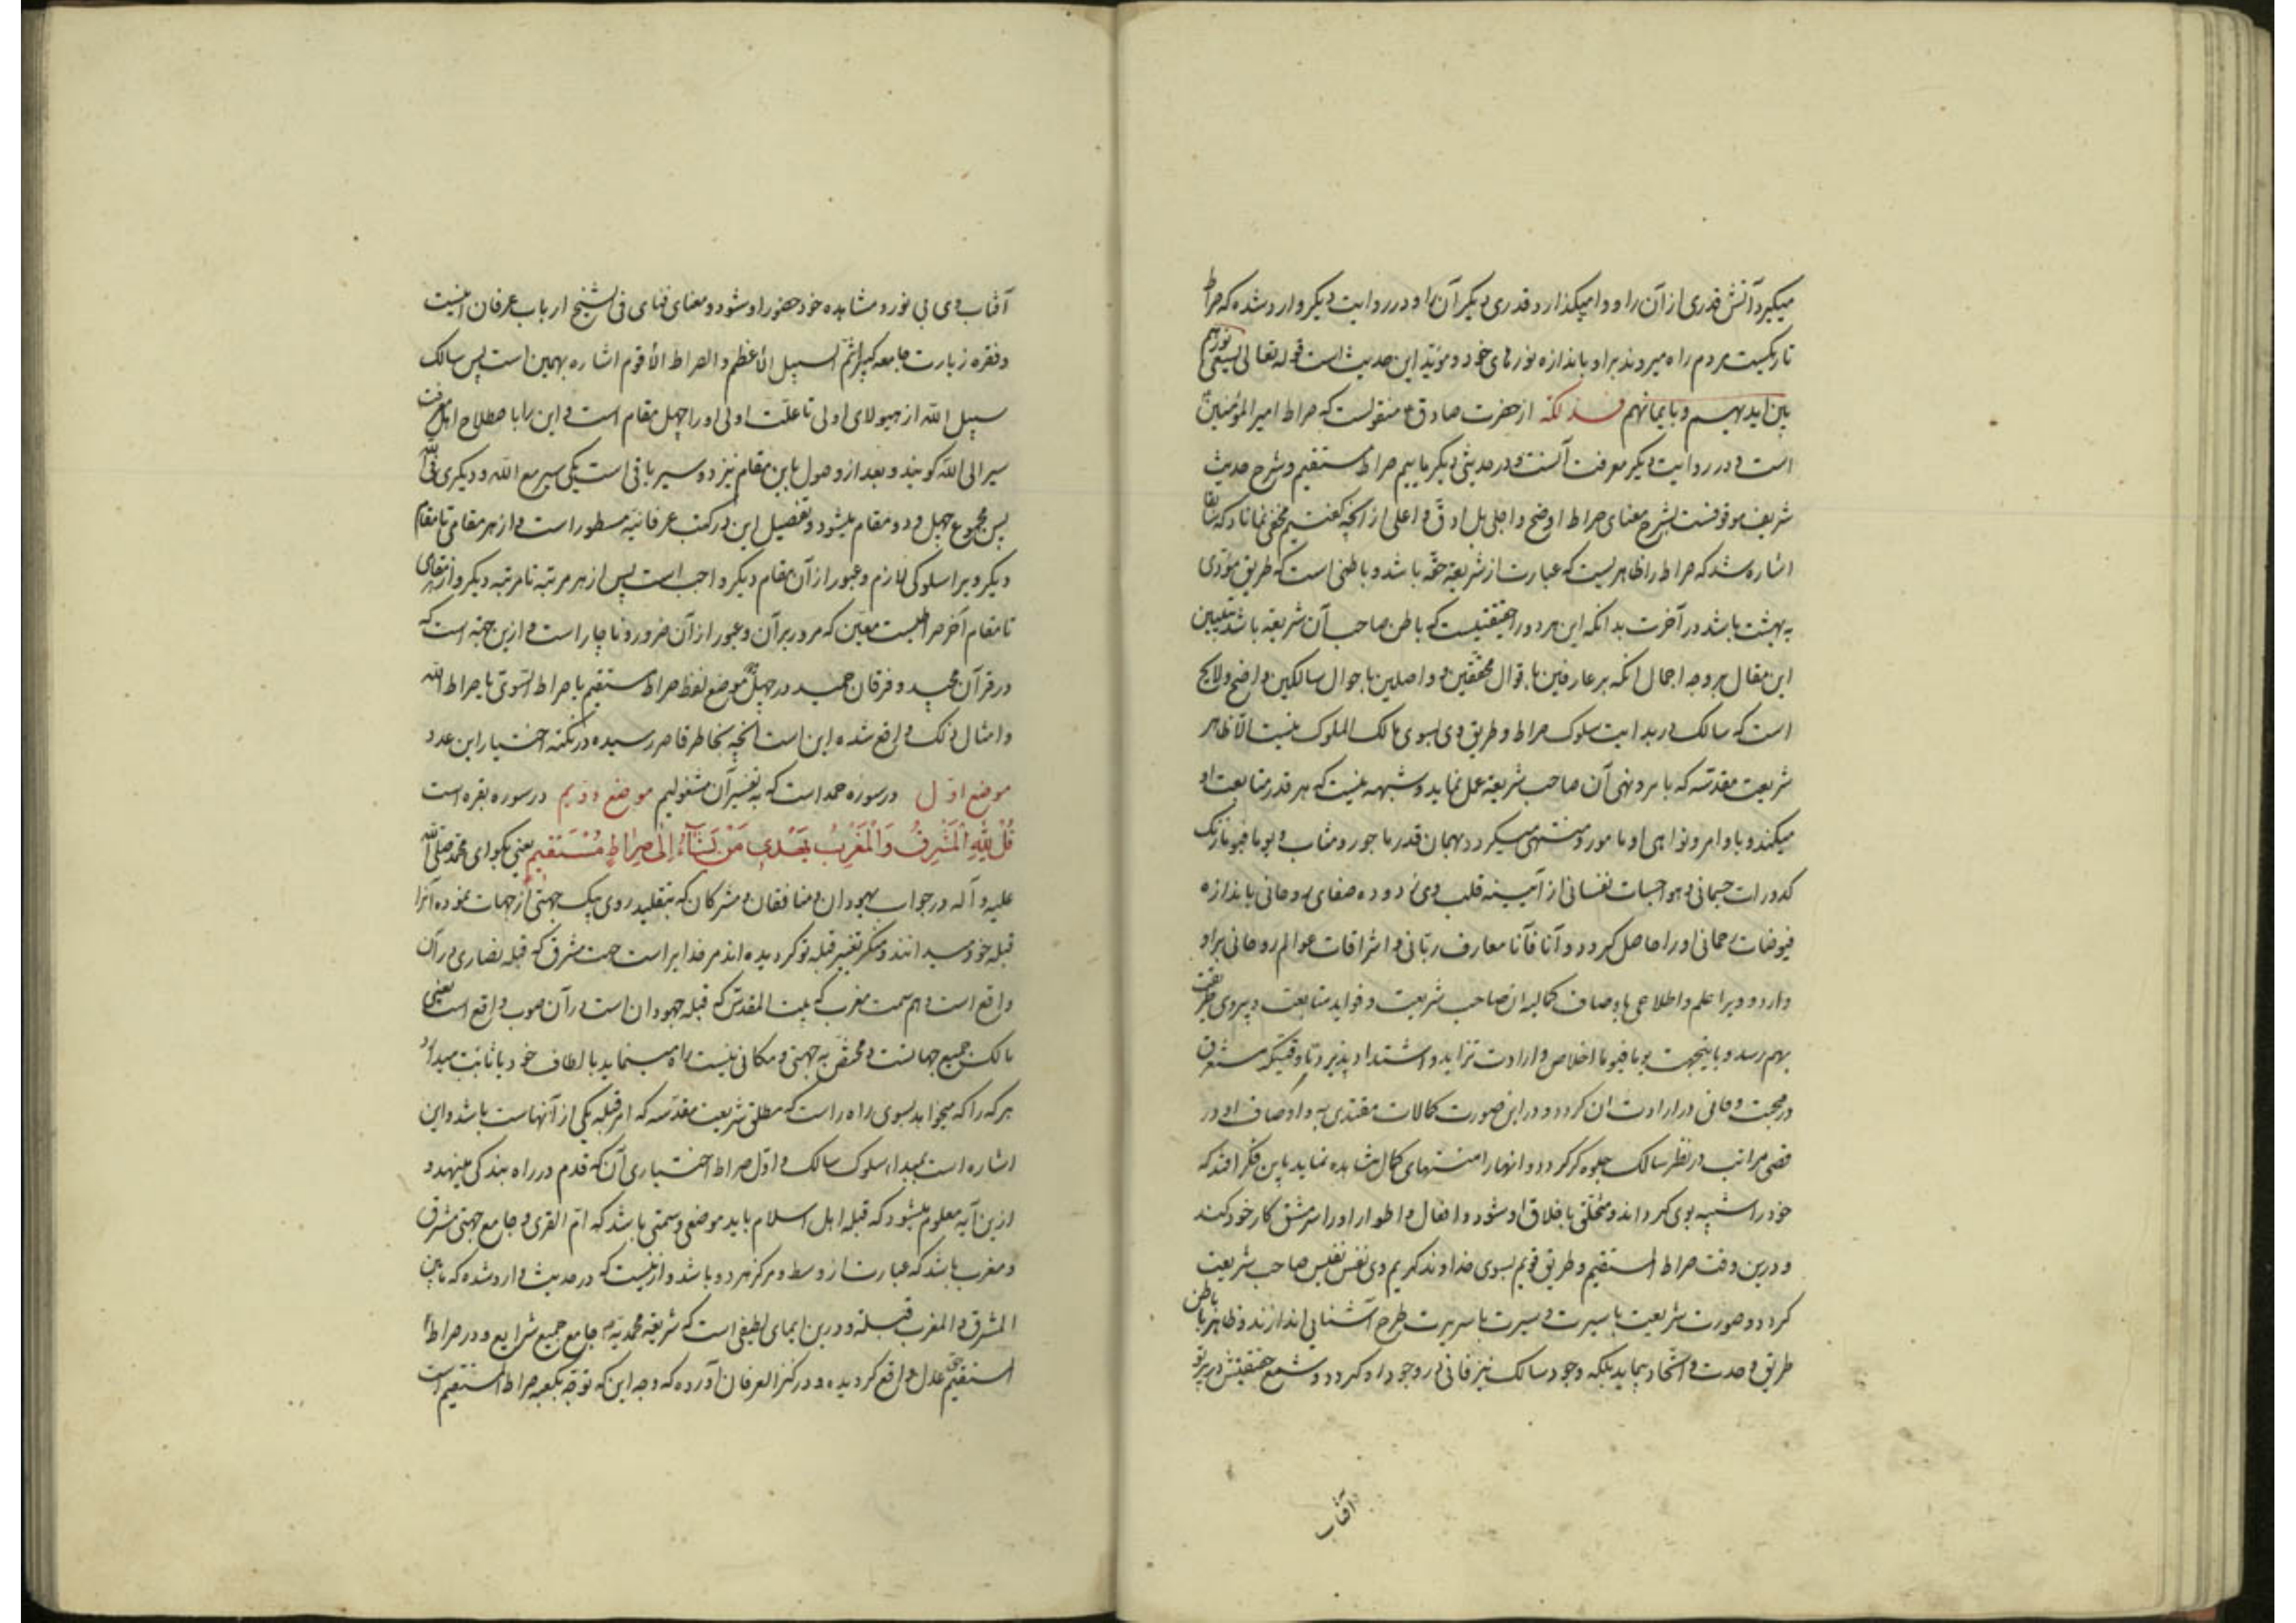 میکیرد آتش قدری از آن را و وامیکذارد قدری دیکر آن را و در روایت دیکر وارد شده که صراط
تاریکیست مردم راه میروند بر او باندازه نورهای خود و مؤید این حدیث است قوله تعالی یسعی نورهم
بین ایدیهم و بایمانهم فذلکه از حضرت صادق ع منقولست که صراط امیر المؤمنین
است و در روایت دیکر معرفت آنست و در حدیثی دیکر ماییم صراط مستقیم و شرح حدیث
شریف موقوفست بشرح معنای صراط اوضح و اجلی بل ادق و اعلی از آنچه کفتیم مخفی نماناد که سابقا
اشاره شد که صراط را ظاهریست که عبارت از شریعة حقه باشد و باطنی است که طریق مؤدی
به بهشت باشد در آخرت بدانکه این هر دو را حقیقتیست که باطن صاحب آن شریعة باشد تبیین
این مقال بر وجه اجمال انکه بر عارفین باقوال محققین و واصلین باحوال سالکین واضح و لایح
است که سالک در بدایت سلوک صراط و طریق وی بسوی مالک الملوک نیست الا ظاهر
شریعت مقدسه که بامر و نهی آن صاحب شریعة عمل نماید و شبهه نیست که هر قدر متابعت او
میکند و باوامر و نواهی او مامور و منتهی میکردد بهمان قدر ماجور و مثاب و یوما فیوما زنک
کدورات جسمانی و هواجسات نفسانی از آیینه قلب وی زدوده صفای روحانی باندازه
فیوضات رحمانی او را حاصل کردد و آنا فآنا معارف ربانی و اشراقات عوالم روحانی بر او
وارد و ویرا علم و اطلاعی باوصاف کمالیه ان صاحب شریعت و فواید متابعت و پیروی طریقت
بهم رسد و باینجهت یوما فیوما اخلاص و ارادت تزاید و اشتداد پذیرد تا وقتیکه مستغرق
در محبت و فانی در ارادت ان کردد و در این صورت کمالات مقتدی به و اوصاف او در
قصی مراتب در نظر سالک جلوه کر کردد و انها را منتهای کمال مشاهده نماید باین فکر افتد که
خود را شبیه بوی کرداند و متخلق باخلاق او شود و افعال و اطوار او را سرمشق کار خود کند
و درین وقت صراط المستقیم و طریق قویم بسوی خداوند کریم وی نفس نفیس صاحب شریعت
کردد و صورت شریعت با سیرت و سیرت با سریرت طرح آشنایی اندازند و ظاهر با باطن
طریق وحدت و اتحاد پیماید بلکه وجود سالک نیز فانی در وجود او کردد و شمع حقیقتش در پرتو
آفتاب
آفتاب وی بی نور و مشاهده خود حضور او شود و معنای فنای فی الشیخ ارباب عرفان اینست
و فقره زیارت جامعه کبیر انتم السبیل الاعظم و الصراط الاقوم اشاره بهمین است پس سالک
سبیل الله از هیولای اولی تا علت اولی او را چهل مقام است و این را باصطلاح اهل معرفت
سیر الی الله کویند و بعد از وصول باین مقام نیز دو سیر باقی است یکی سیر مع الله و دیکری فی الله
پس مجموع چهل و دو مقام میشود و تفصیل این در کتب عرفانیه مسطور است و از هر مقامی تا مقام
دیکر ویرا سلوکی لازم و عبور از آن مقام دیکر واجب است پس از هر مرتبه تا مرتبه دیکر و از هر مقامی
تا مقام آخر صراطیست معین که مرور بر آن و عبور از آن ضرور و ناچار است و ازین جهة است که
در قرآن مجید و فرقان حمید در چهل موضع لفظ صراط مستقیم یا صراط السوی یا صراط الله
و امثال ذلک واقع شده این است آنچه بخاطر قاصر رسیده در نکته اختیار این عدد
موضع اول در سوره حمد است که به تفسیر آن مشغولیم موضع دویم در سوره بقره است
قُلْ لِلّٰهِ الْمَشْرِقُ وَالْمَغْرِبُ یَهْدِی مَنْ یَشَآءُ اِلٰی صِرٰاطٍ مُسْتَقِیمٍ یعنی بکو ای محمد صلی الله
علیه و آله در جواب یهودان و منافقان و مشرکان که بتقلید روی بیک جهتی از جهات نموده آنرا
قبله خود میدانند و منکر تغییر قبله تو کردیده اند مر خدایراست جهت مشرق که قبله نصاری در آن
واقع است و هم سمت مغرب که بیت المقدس که قبله جهودان است در آن صوب واقع است یعنی
مالک جمیع جهاتست و مختص به جهتی و مکانی نیست راه مینماید بالطاف خود یا ثابت میدارد
هر که را که میخواهد بسوی راه راست که مطلق شریعت مقدسه که امر قبله یکی از آنهاست باشد و این
اشاره است بمبداء سلوک سالک و اول صراط اختیاری آن که قدم در راه بندکی مینهد و
ازین آیه معلوم میشود که قبله اهل اسلام باید موضعی و سمتی باشد که ام القری و جامع جهتی مشرق
و مغرب باشد که عبارت از وسط و مرکز هر دو باشد و ازینست که در حدیث وارد شده که ما بین
المشرق و المغرب قبلة و درین ایمای لطیفی است که شریعة محمدیه ص جامع جمیع شرایع و در صراط
المستقیم حق عدل واقع کردیده و در کنز العرفان آورده که وجه این که توجه بکعبه صراط المستقیم است